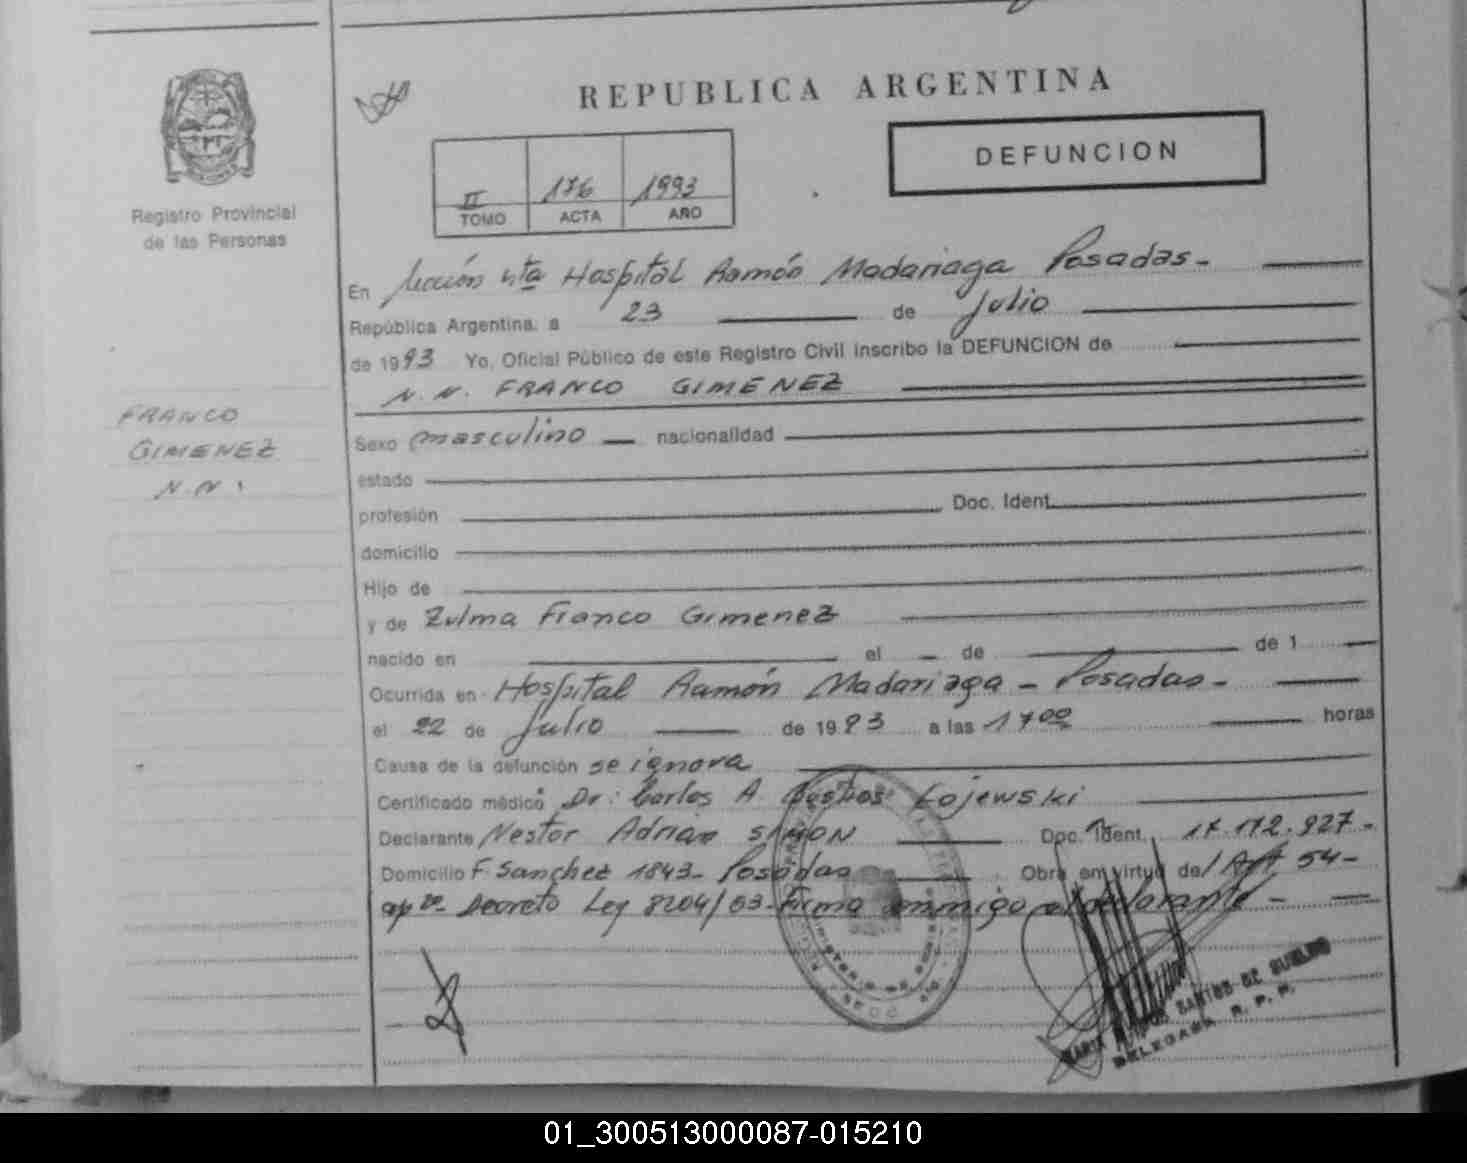 REPUBLICA ARGENTINA
DEFUNCION
II 176 1993
TOMO ACTA AÑO
Registro Provincial
de las Personas
En Sección 4ta Hospital Ramón Madariaga Posadas-
República Argentina, a 23 de Julio
de 1993 Yo, Oficial Público de este Registro Civil inscribo la DEFUNCION de
N.N. FRANCO GIMENEZ
FRANCO
GIMENEZ
N.N.
Sexo masculino nacionalidad
estado
profesión Doc. Ident.
domicilio
Hijo de
y de Zulma Franco Gimenez
nacido en el de de 1
Ocurrida en Hospital Ramón Madariaga - Posadas-
el 22 de Julio de 1993 a las 17 00 horas
Causa de la defunción se ignora
Certificado médico Dr: Carlos A Lojewski
Declarante Nestor Adrian SIMON Doc. Ident. 17.172.927-
Domicilio F Sanchez 1843- Posadas Obra en virtud de Art 54-
Decreto Ley 8204/63- Firma conmigo el declarante-
MARIA SANTOS DE
DELEGADA R. P. P.
01_300513000087-015210